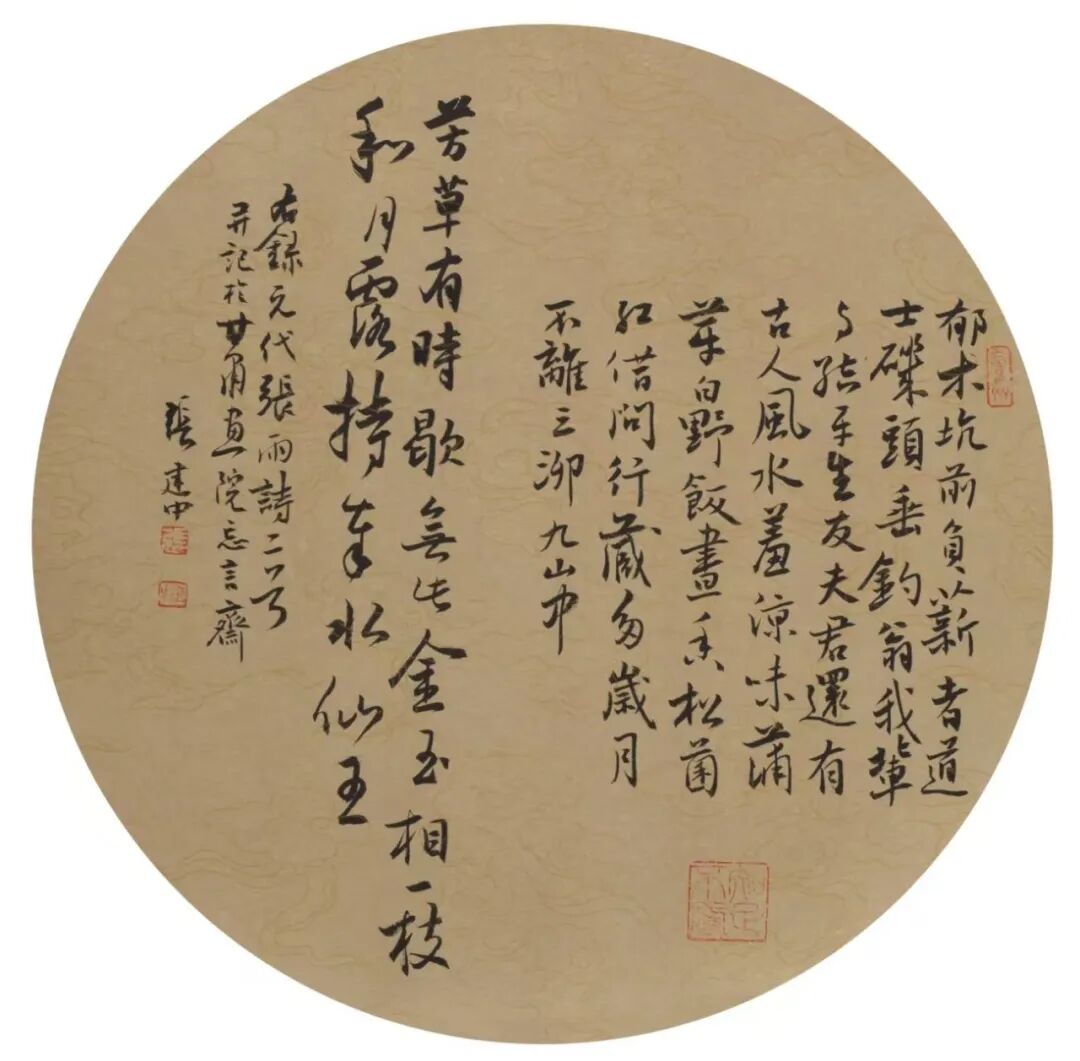 郁木坑前負薪者道
士磯頭垂釣翁我輩
与結平生友夫君還有
古人風水羞涼味蒲
芽白野飯晝香松菌
紅借問行藏多歲月
不離三泖九山中
芳草有時歇無此金玉相一枝
和月露持奉水仙王
右錄元代張雨詩二首
并記於甘肅畫院忘言齋
張建中